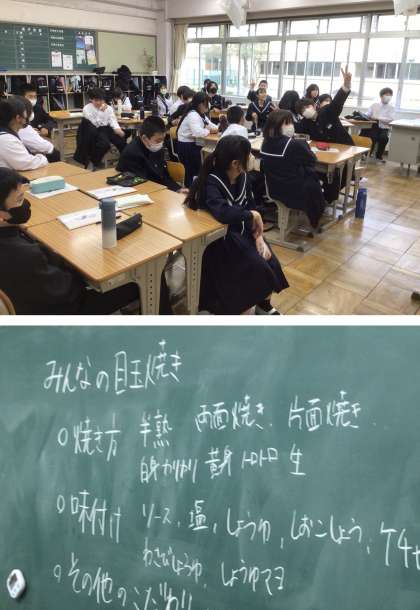 みんなの目玉焼き
○焼き方 半熟 両面焼き、片面焼き、
白身カリカリ 黄身トロトロ 生
○味付け ソース、塩、しょうゆ、しおこしょう、ケチャ
わさびしょうゆ、しょうゆマヨ
○その他のこだわり